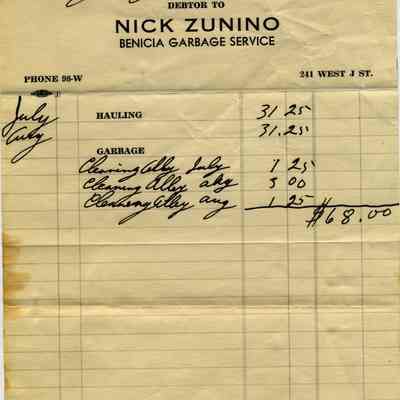 DEBTOR TO
NICK ZUNINO
BENICIA GARBAGE SERVICE
PHONE 98-W 241 WEST J ST.
July HAULING 31 25
Aug 31.25
GARBAGE
Cleaning Alley July 1 25
Cleaning Alley aug 3 00
Cleaning Alley aug 1 25
$68.00